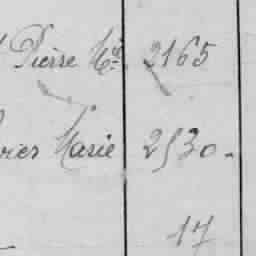 Pierre Me 2165
ries Marie 2530.
17